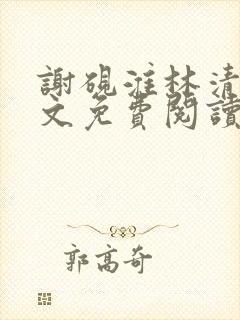 謝硯漼林清
文免費閱讀
郭高奇